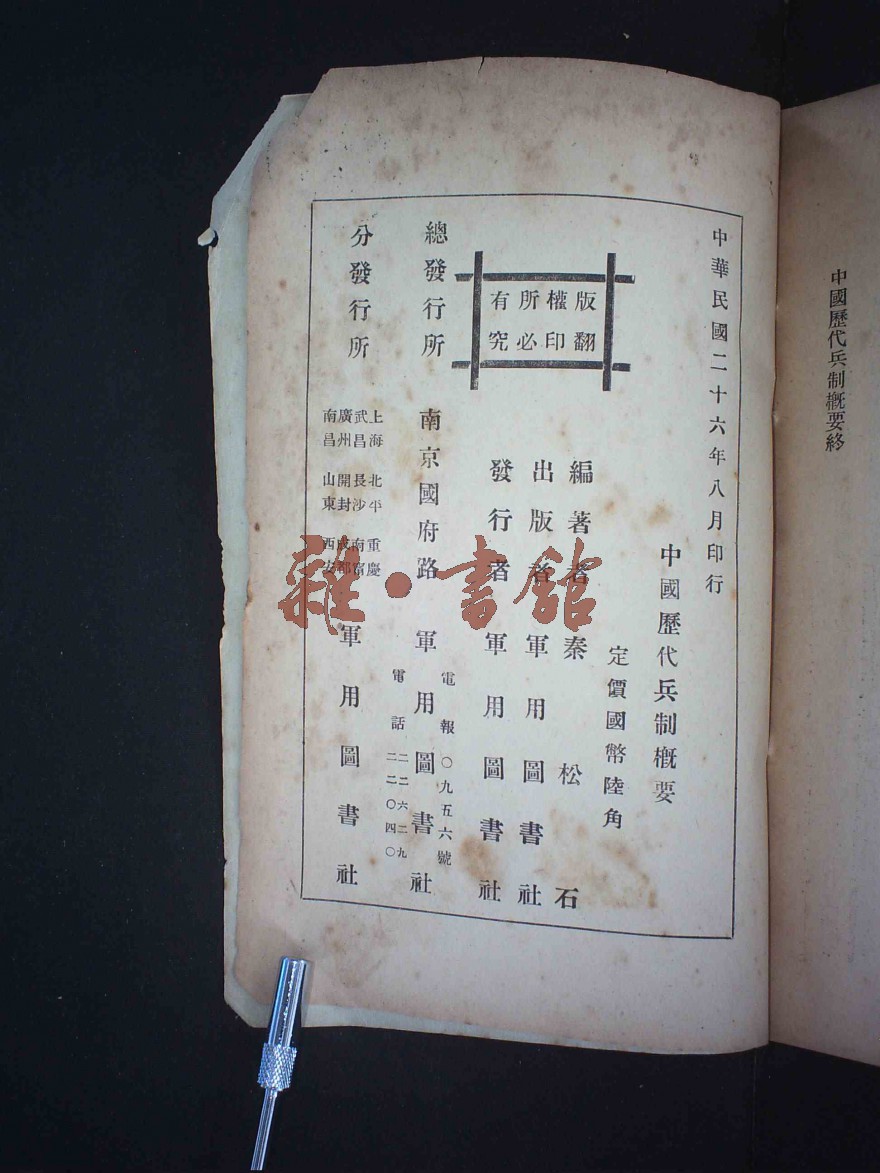 中國歷代兵制概要終
中華民國二十六年八月印行
中國歷代兵制概要
定價國幣陸角
編著者 秦松石
出版者 軍用圖書社
發行者 軍用圖書社
版權所有
翻印必究
總發行所 南京國府路 軍用圖書社
電報 〇九五六號
電話 二二六二九
二二〇四〇
分發行所
上海 北平 重慶
武昌 長沙 南寧
廣州 開封 成都
南昌 山東 西安
軍用圖書社
雜·書館